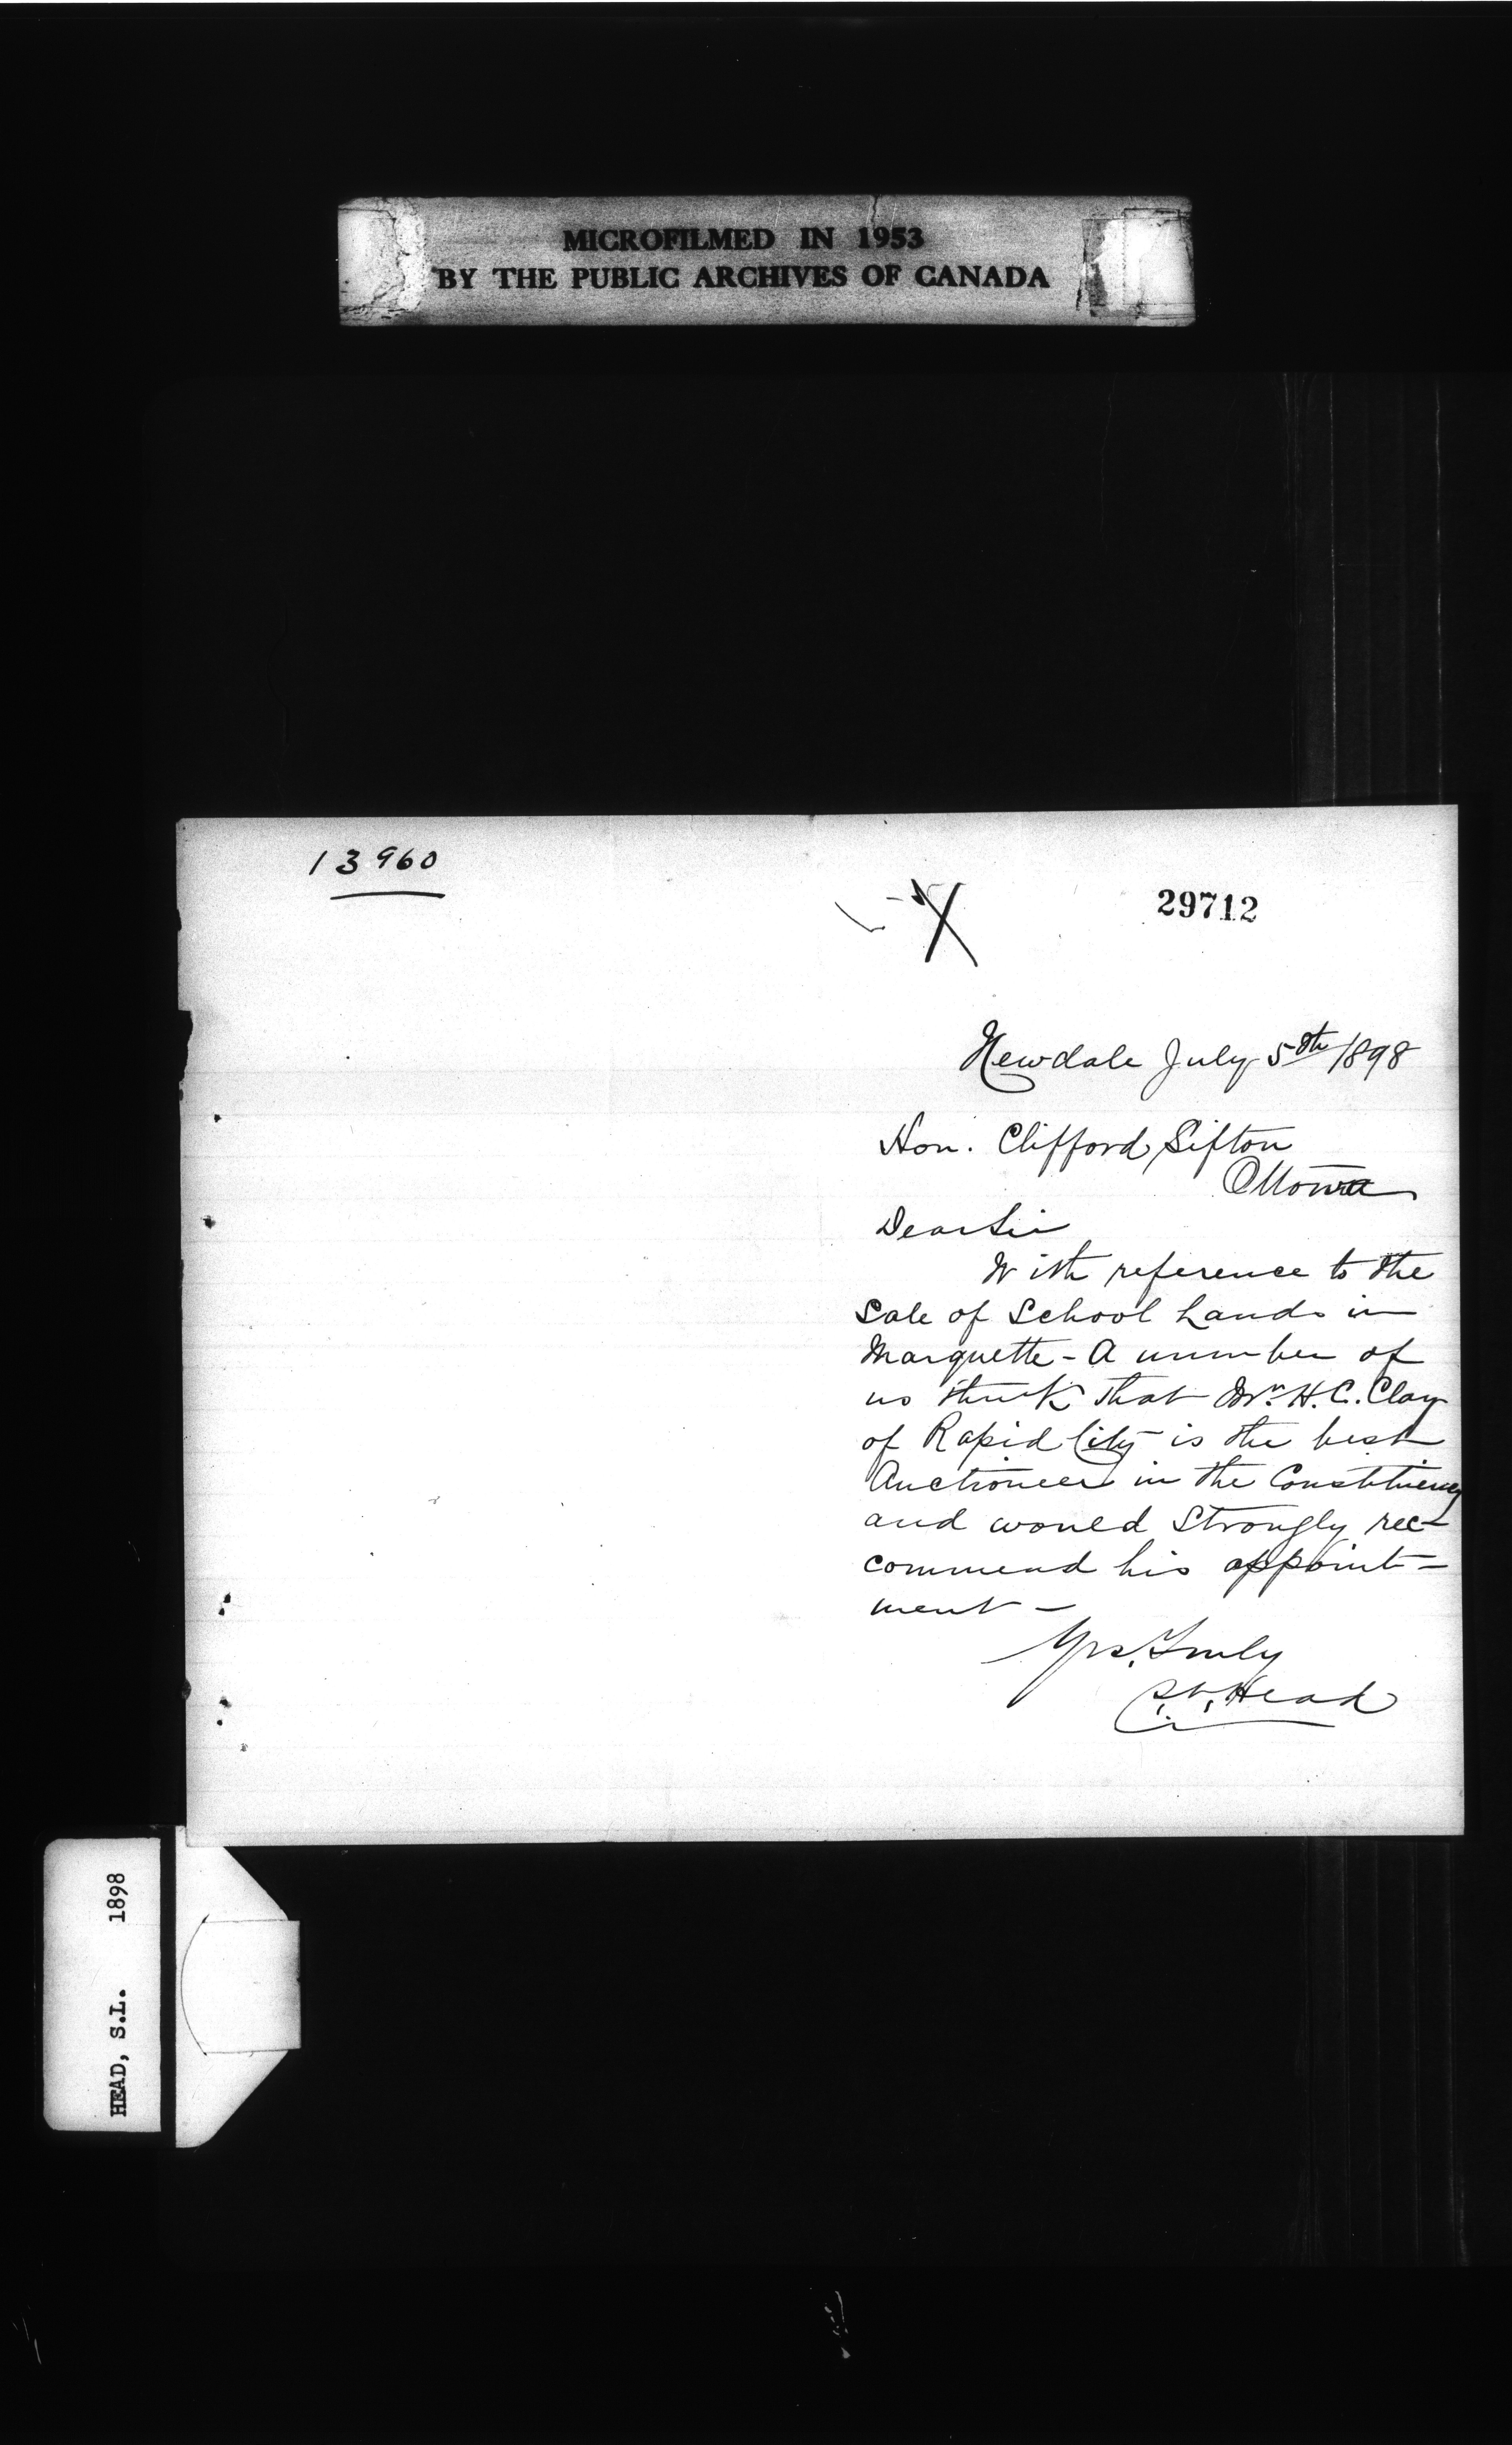 MICROFILMED IN 1953
BY THE PUBLIC ARCHIVES OF CANADA
13960
29712
Newdale July 5th 1898
Hon. Clifford Sifton
Ottawa
Dear Sir
With reference to the
Sale of School Lands in
Marquette - A number of
us think that Mr. H. C. Clay
of Rapid City is the best
Auctioneer in the Constituency
and would Strongly rec-
commend his appoint-
ment -
Yrs. Truly
S. L. Head
HEAD, S.L. 1898